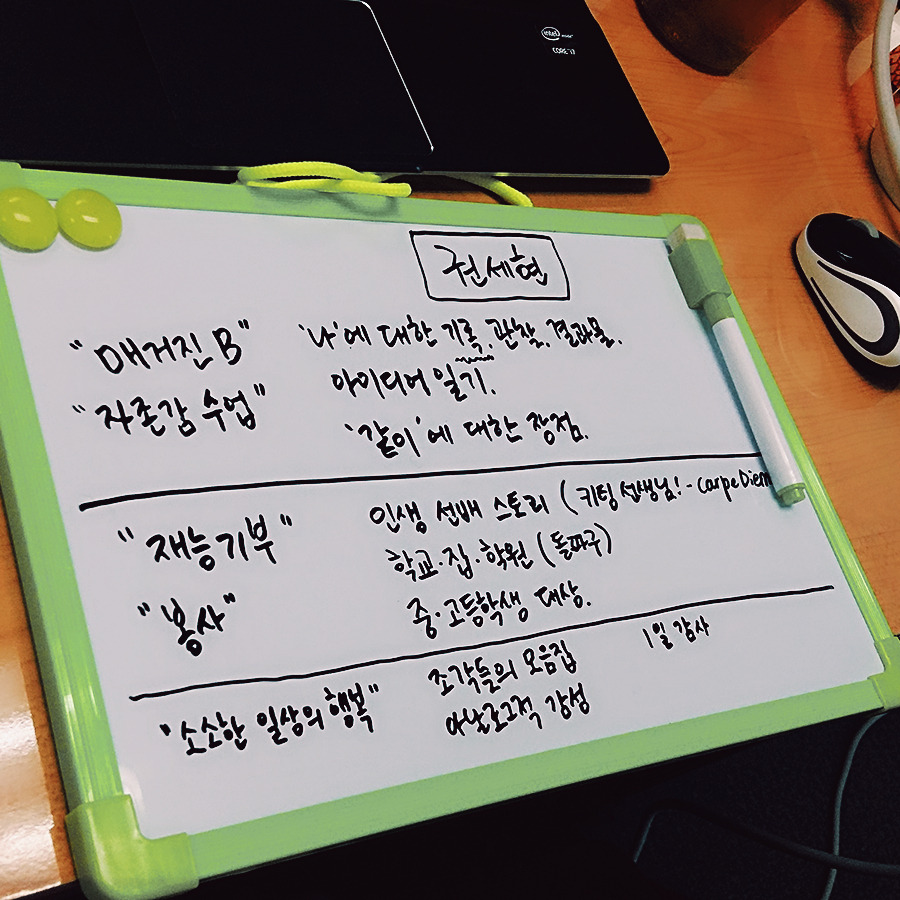 intel
CORE i7
권세현
"매거진 B" '나'에 대한 기록, 관찰, 결과물.
"자존감 수업" 아이디어 일기.
'같이'에 대한 장점.
"재능기부" 인생 선배 스토리 (키팅 선생님! - carpe Diem
학교·집·학원 (돌파구)
"봉사" 중·고등학생 대상.
"소소한 일상의 행복" 조각들의 모음집 1일 감사
아날로그적 감성